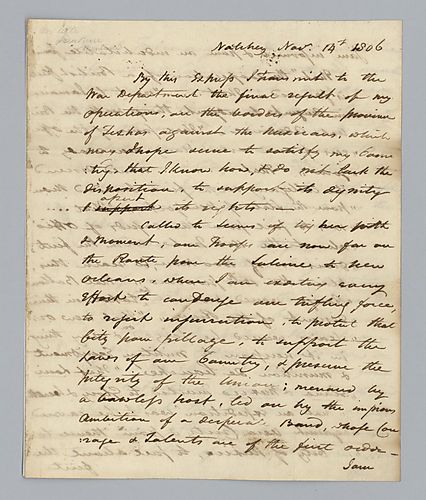 Natchez Nov. 14th 1806
By this Express I transmit to the
War Department the final result of my
operations, on the borders of the province
of Texas against the Mexicans, which
may I hope serve to satisfy my Coun
:try, that I know how, & do not lack the
disposition, to support its dignity
& support assert its rights —
Called to Scenes of higher
& moment, our Troops are now far on
the Route from the Sabine to New
Orleans, where I am exerting every
Effort to condense our trifling force,
to resist insurrection, to protect that
City from pillage, to support the
Laws of our Country, & preserve the
Integrity of the Union; menaced by
a Lawless host, led on by the impious
Ambition of a desperate Band, whose Cou
rage & Talents are of the first order—